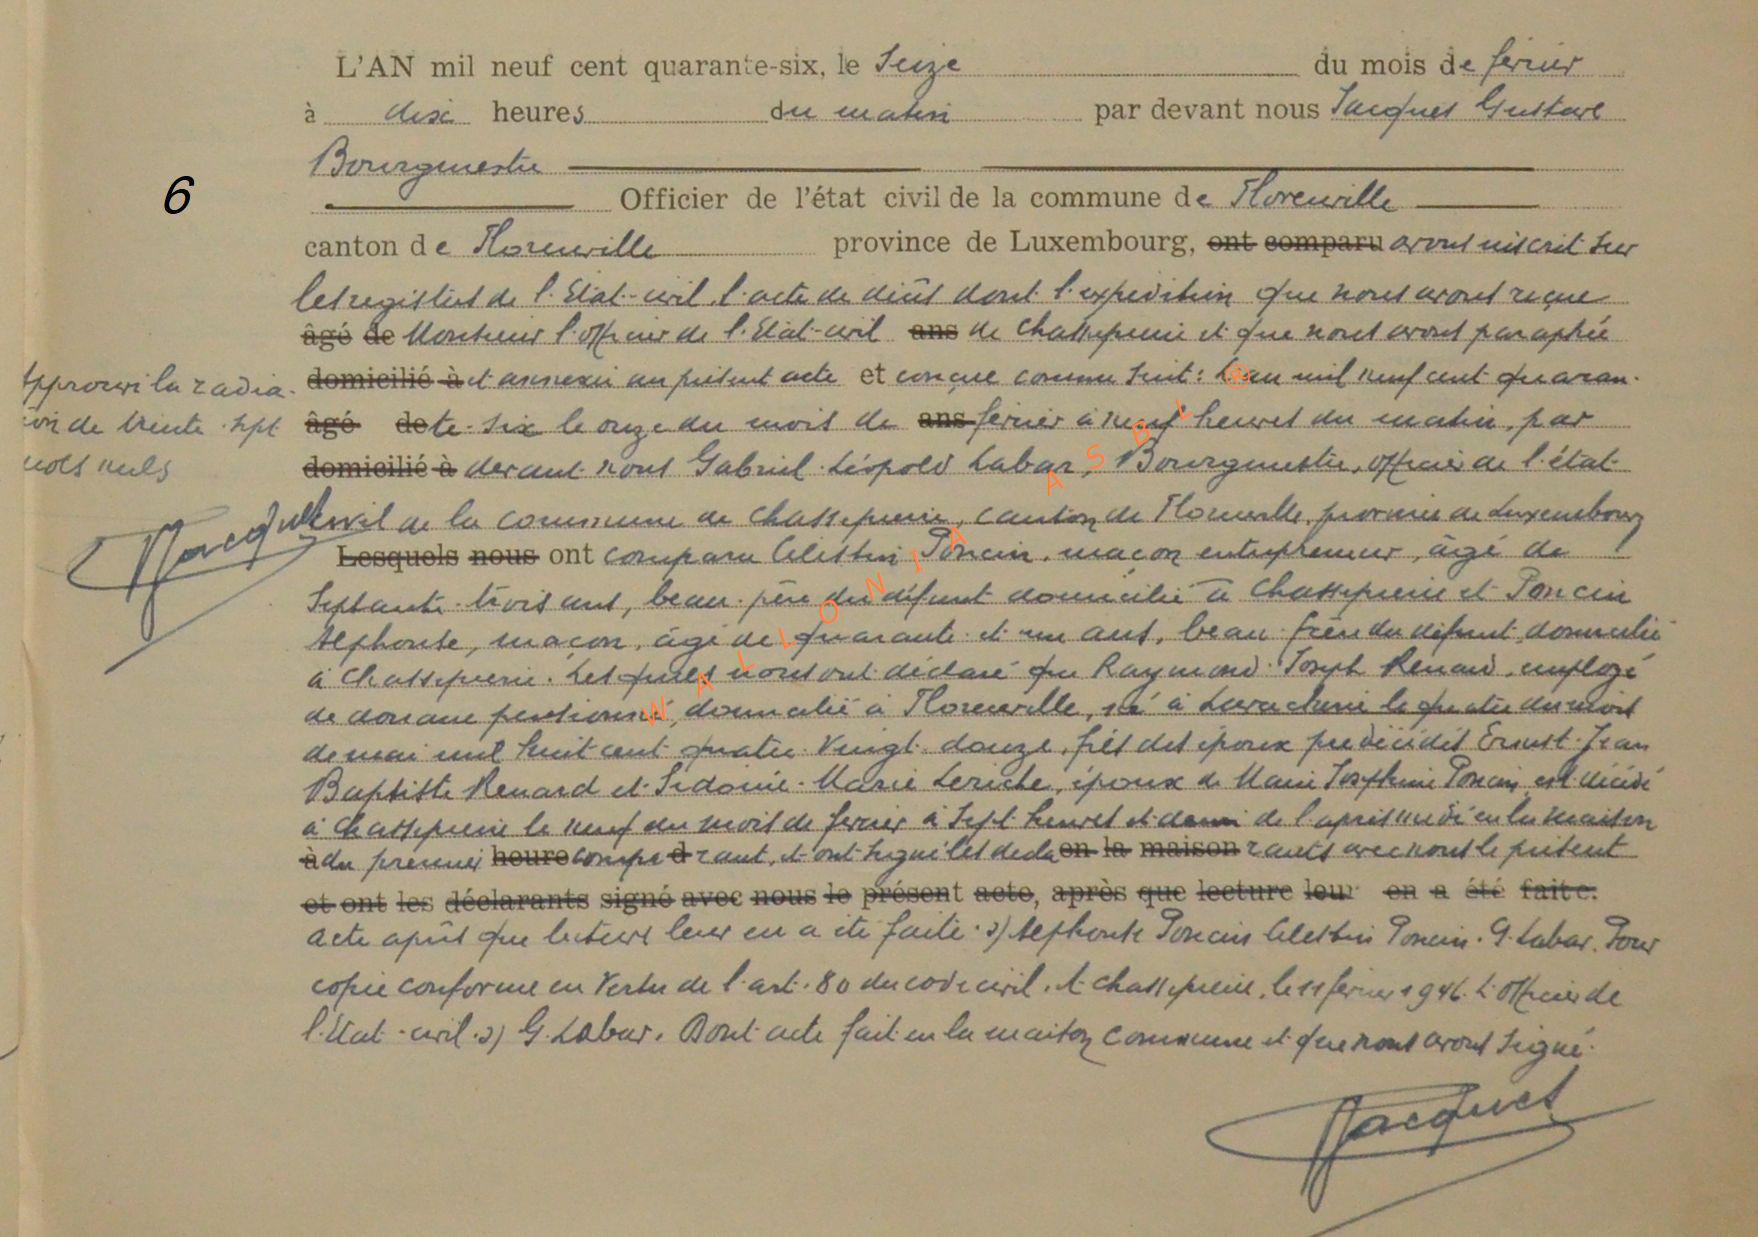 L'AN mil neuf cent quarante-six, le Seize du mois de février
à dix heures du matin par devant nous Jacques Gustave
Bourgmestre
6
Officier de l'état civil de la commune de Florenville
canton de Florenville province de Luxembourg, ont comparu avons inscrit sur
les registres de l'Etat-civil l'acte de décès dont l'expédition que nous avons reçue
âgé de Monsieur l'officier de l'Etat-civil ans de Chassepierre et que nous avons paraphée
domicilié à et annexée au présent acte et conçue comme suit: L'an mil neuf cent quaran-
âgé de te-six le onze du mois de ans février à neuf heures du matin, par
domicilié à devant nous Gabriel Léopold Labar, Bourgmestre, officier de l'état
civil de la commune de Chassepierre, canton de Florenville, province de Luxembourg
Lesquels nous ont comparu Célestin Poncin, maçon entrepreneur, âgé de
Septante-trois ans, beau-père du défunt domicilié à Chassepierre et Poncin
Alphonse, maçon, âgé de quarante et un ans, beau-frère du défunt, domicilié
à Chassepierre. Lesquels nous ont déclaré que Raymond-Joseph Renard, employé
de douane pensionné, domicilié à Florenville, né à Lavacherie le quatre du mois
de mai mil huit cent quatre-vingt-douze, fils des époux prédécédés Ernest-Jean
Baptiste Renard et Sidonie-Marie Leriche, époux de Marie Joséphine Poncin, est décédé
à Chassepierre le neuf du mois de février à Sept heures et demi de l'après midi en la maison
à du premier heure compa d rant, et ont signé les décla en la maison rants avec nous le présent
et ont les déclarants signé avec nous le présent acte, après que lecture leur en a été faite.
acte après que lecture leur en a été faite. s) Alphonse Poncin Célestin Poncin. G. Labar. Pour
copie conforme en vertu de l'art. 80 du code civil. A Chassepierre, le 11 février 1946. L'officier de
l'Etat-civil. s) G. Labar. Dont acte fait en la maison commune et que nous avons signé.
Approuvé la radia-
tion de trente-sept
mots nuls
Jacques
Jacques
WALLONIA ASBL